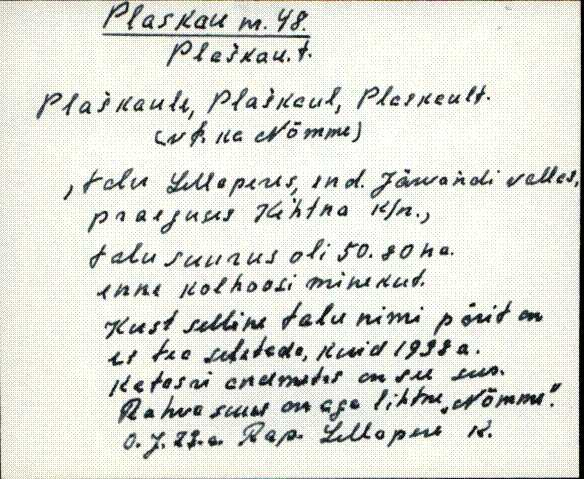 Plaskau m. 48.
Plaškau. t.
Plaškaule, Plaškaul, Plaskault.
(vt. ka Nõmme)
, talu Lellaperes, end. Järvandi vallas,
praeguses Kehtna k/n.,
talu suurus oli 50.80 ha.
enne kolhoosi minekut.
Kust selline talu nimi pärit on
ei tea seletada, kuid 1938 a.
Katastri andmetes on see sees.
Rahva suus on aga lihtne „Nõmme".
O. J. 22.a. Rap. Lellapere k.